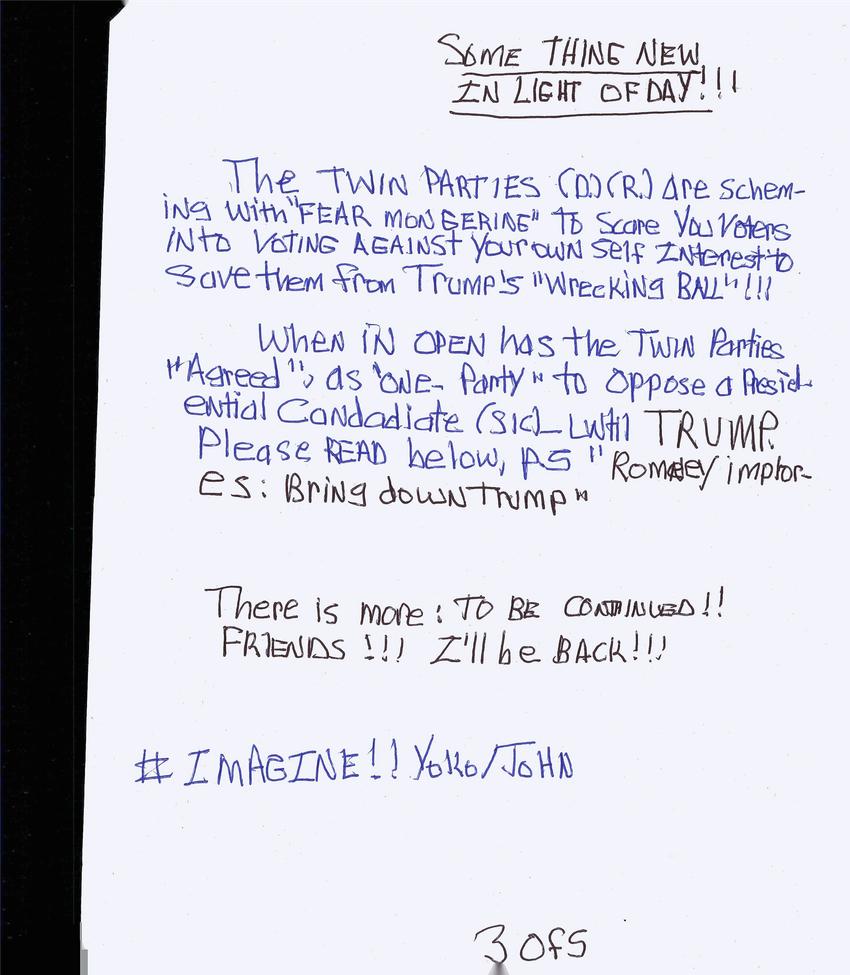 SOME THING NEW
IN LIGHT OF DAY!!!
The TWIN PARTIES (D.)(R.) Are Schem-
ing With "FEAR MONGERING" TO Scare You Voters
INTO VOTING AGAINST Your OWN Self INterest to
Save them from Trump's "Wrecking BALL"!!!
When IN OPEN has the TWIN Parties
"Agreed", as "ONE- Party" to Oppose a Presid-
ential Candadiate (Sic)- Until TRUMP.
Please READ below, AS "Romney implor-
es: Bring down Trump"
There is more: TO BE CONTINUED!!
FRIENDS!!! I'll be BACK!!!
# IMAGINE!! Yoko/JOHN
3 OF 5